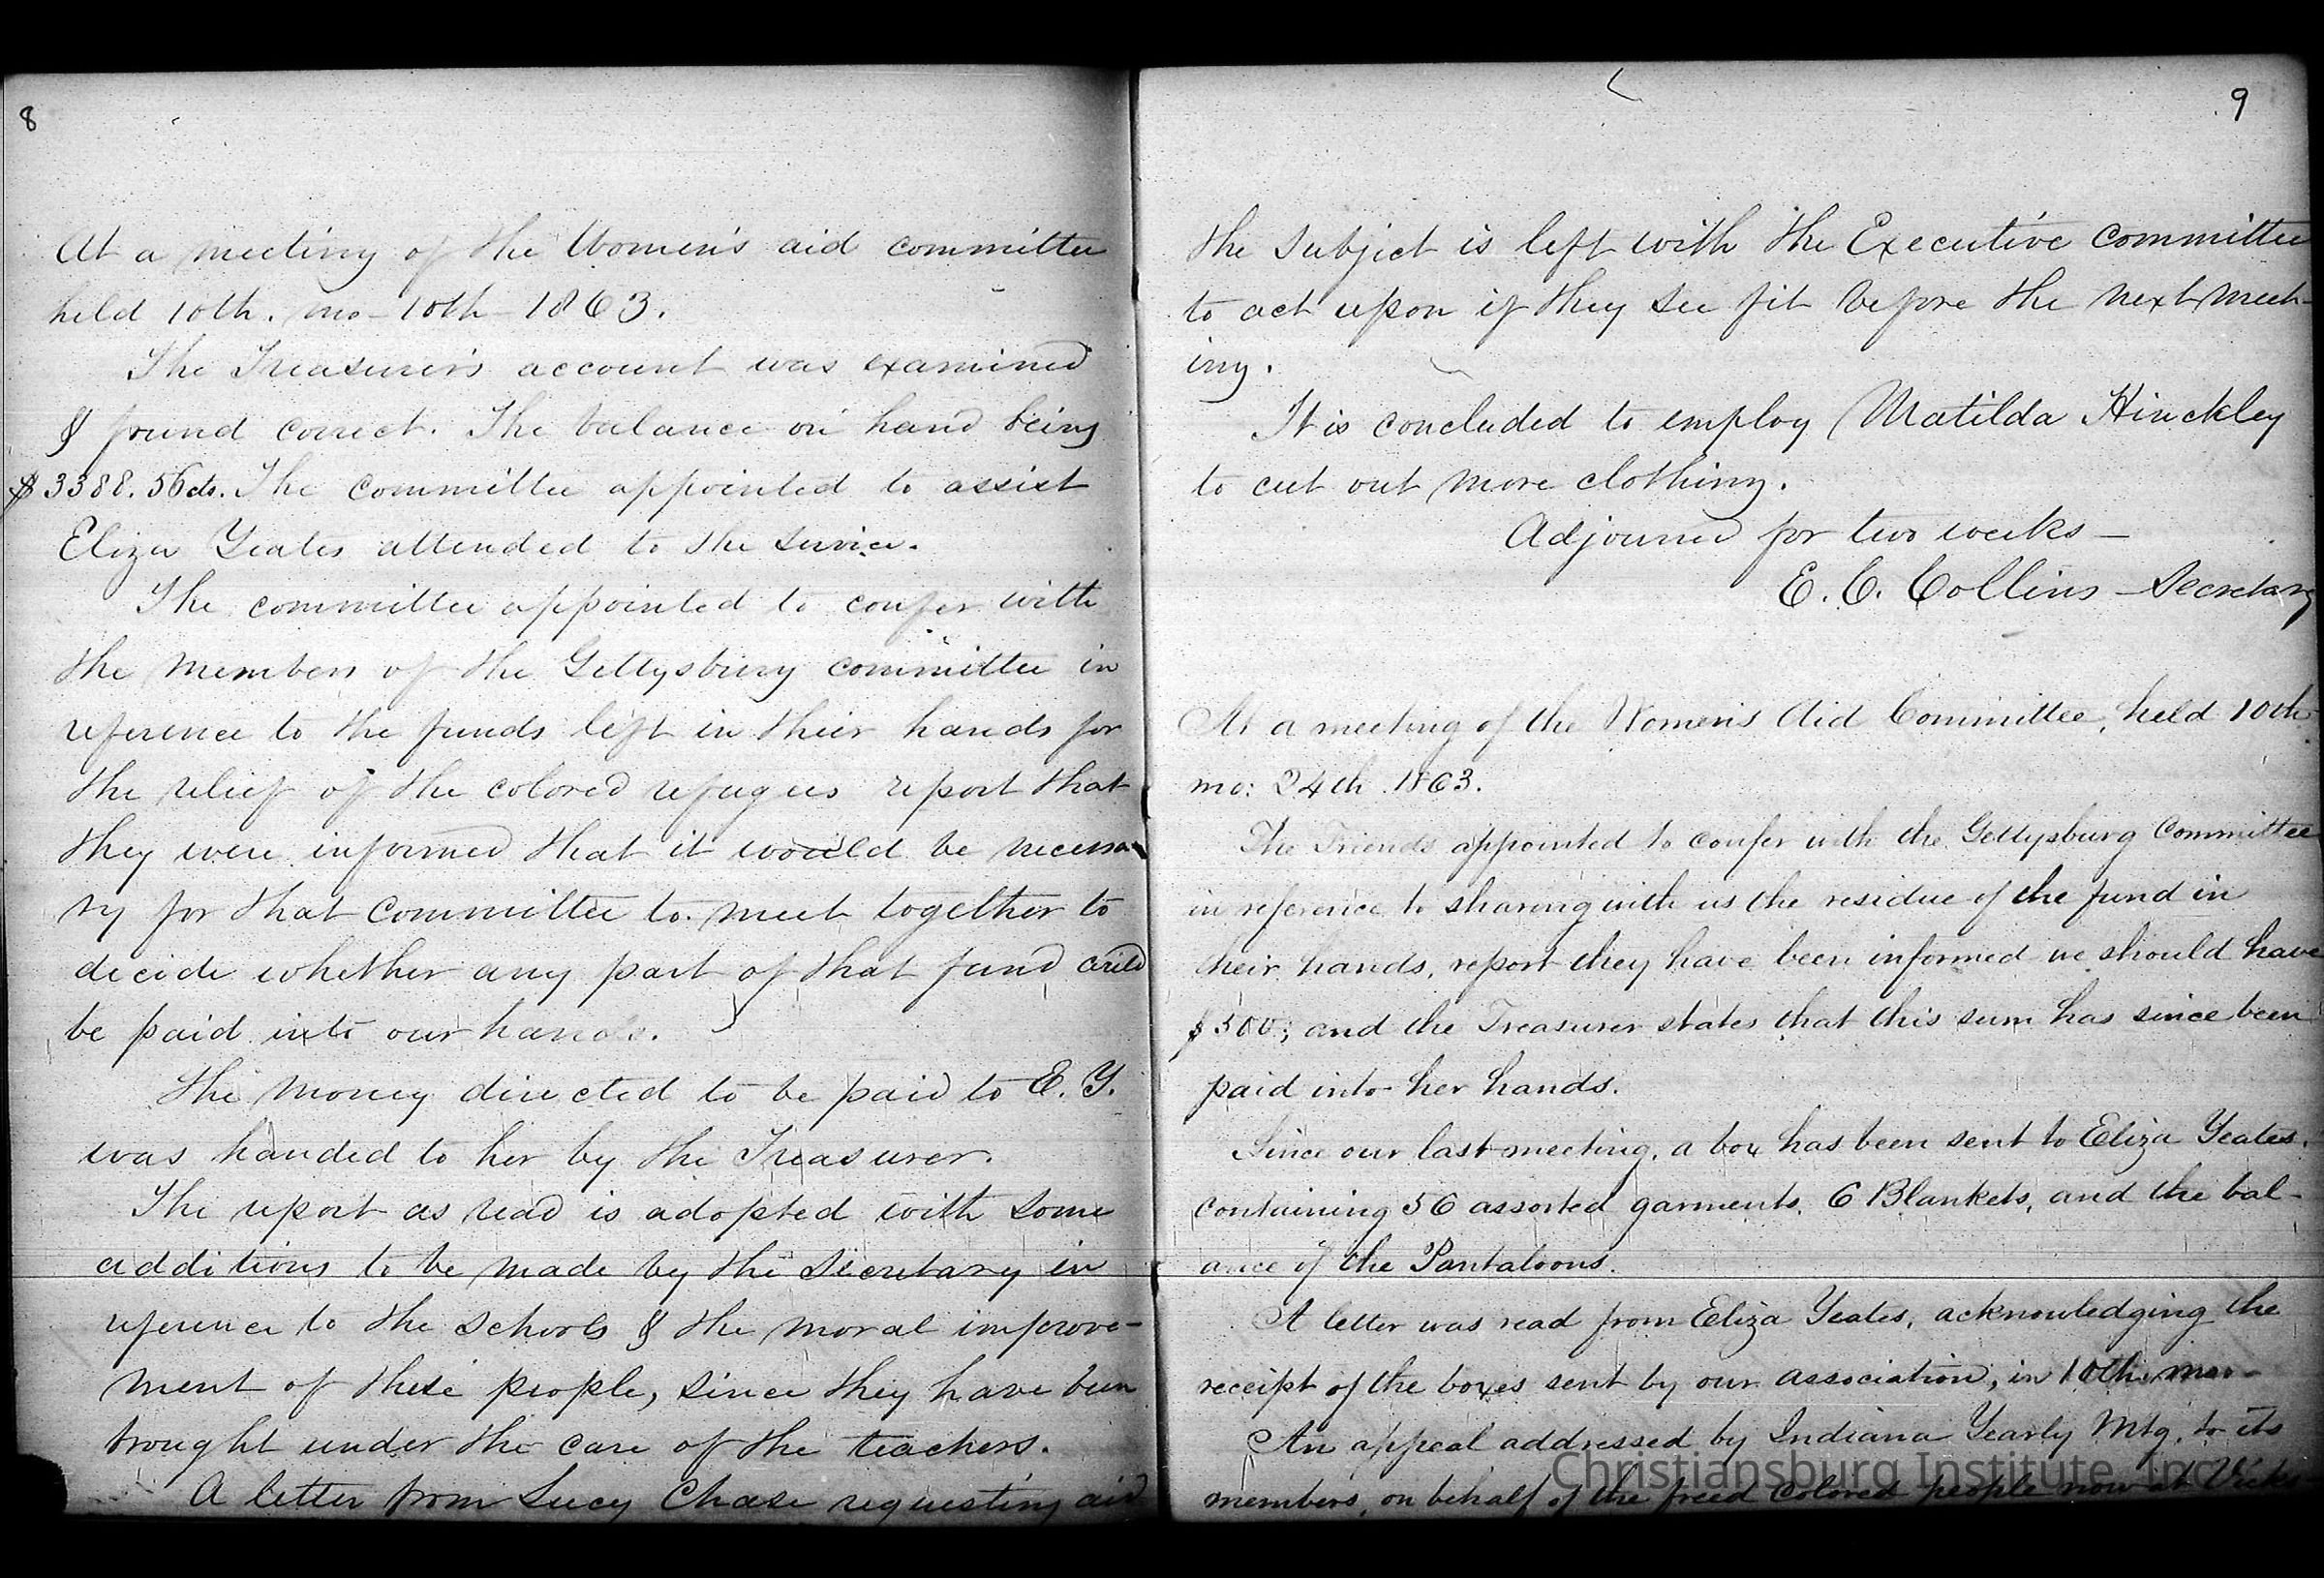 8
At a meeting of the Women's aid committee
held 10th. mo - 10th - 1863.
The Treasurer's account was examined
& found correct. The balance on hand being
$3388.56cts. The committee appointed to assist
Eliza Yeates attended to the service.
The committee appointed to confer with
the members of the Gettysburg committee in
reference to the funds left in their hands for
the relief of the colored refugees report that
they were informed that it would be necessa
ry for that committee to meet together to
decide whether any part of that fund could
be paid into our hands.
The money directed to be paid to E. Y.
was handed to her by the Treasurer.
The report as read is adopted with some
additions to be made by the Secretary in
reference to the schools & the moral improve-
ment of these people, since they have been
brought under the care of the teachers.
A letter from Lucy Chase requesting aid
9
the subject is left with the Executive committee
to act upon if they see fit before the next meet-
ing.
It is concluded to employ Matilda Hinckley
to cut out more clothing.
Adjourned for two weeks —
E. C. Collins — Secretary
At a meeting of the Women's Aid Committee, held 10th
mo: 24th 1863.
The Friends appointed to confer with the Gettysburg Committee
in reference to sharing with us the residue of the fund in
their hands, report they have been informed we should have
$500; and the Treasurer states that this sum has since been
paid into her hands.
Since our last meeting, a box has been sent to Eliza Yeates.
containing 56 assorted garments, 6 Blankets, and the bal-
ance of the Pantaloons.
A letter was read from Eliza Yeates, acknowledging the
receipt of the boxes sent by our association, in 10th mo -
An appeal addressed by Indiana Yearly Mtg. to its
members, on behalf of the freed colored people now at Vicks
Christiansburg Institute, Inc.